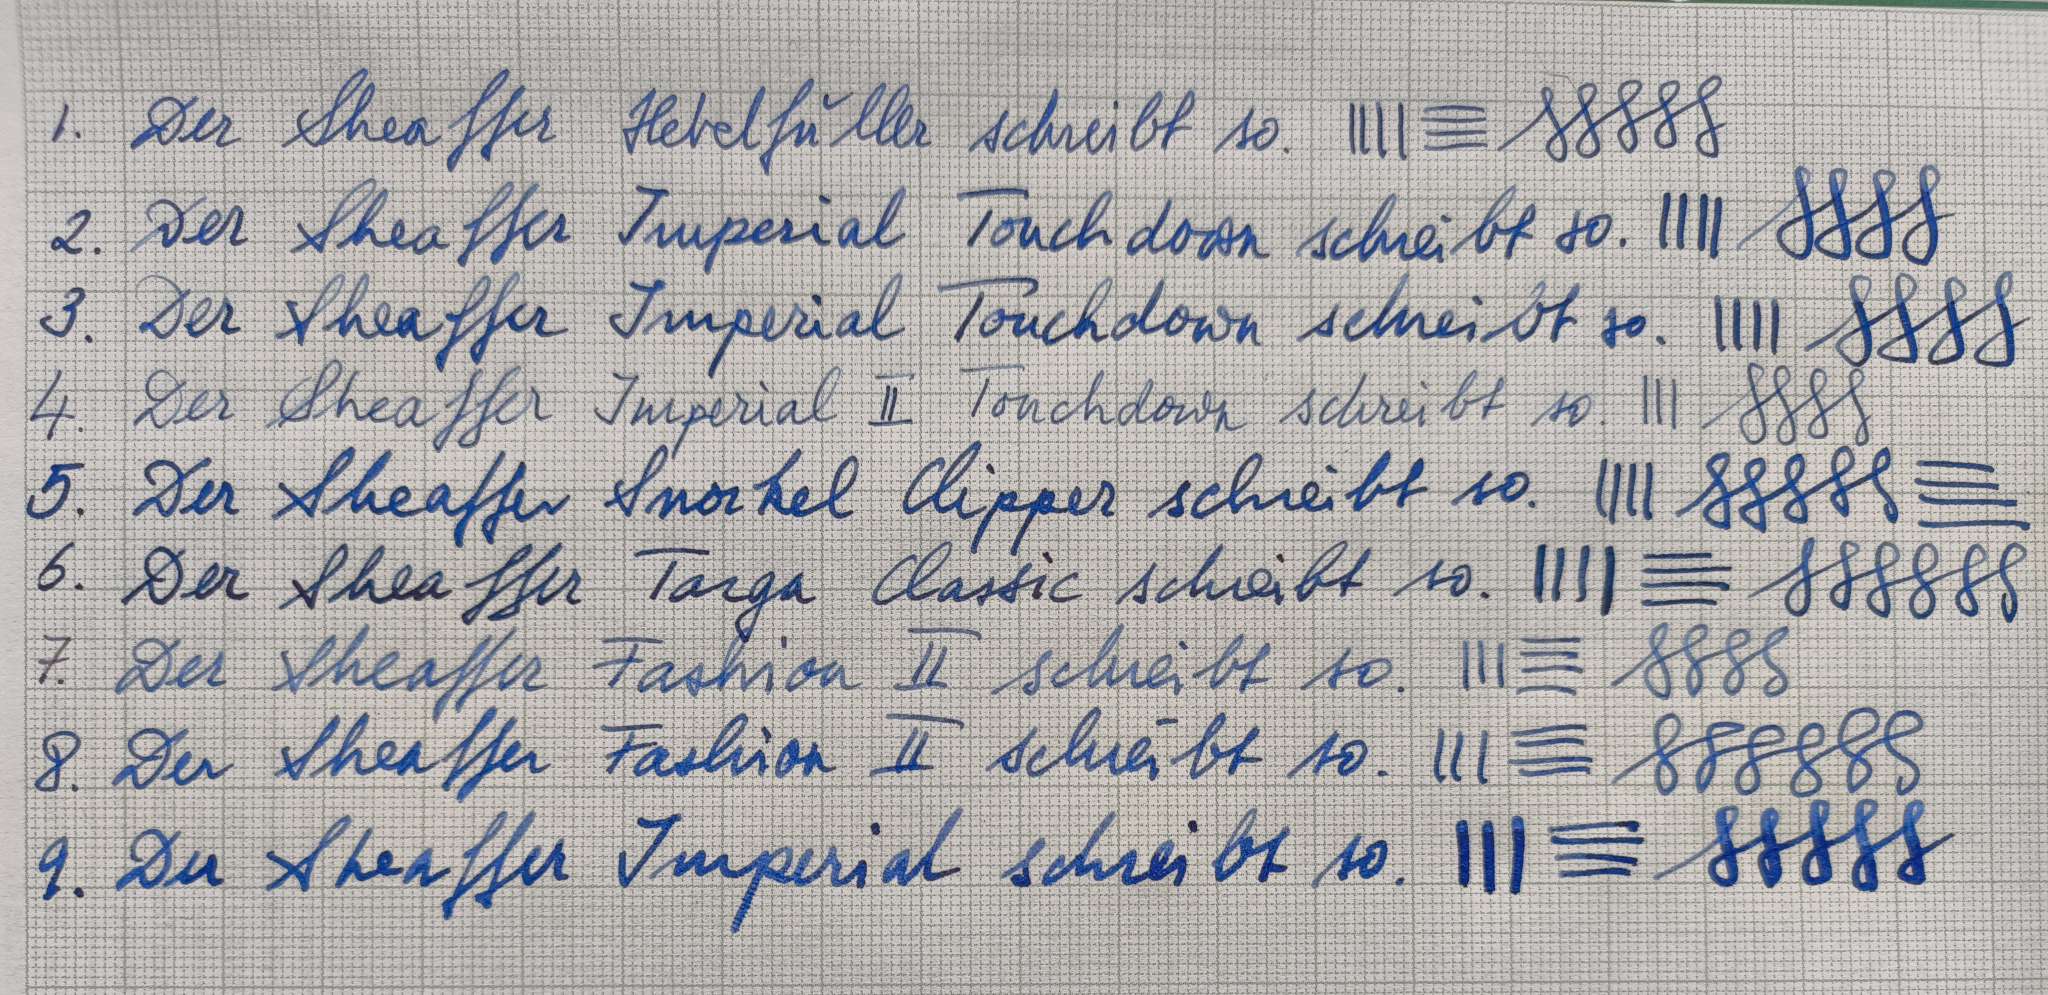 1. Der Sheaffer Hebelfüller schreibt so.
2. Der Sheaffer Imperial Touchdown schreibt so.
3. Der Sheaffer Imperial Touchdown schreibt so.
4. Der Sheaffer Imperial II Touchdown schreibt so.
5. Der Sheaffer Snorkel Clipper schreibt so.
6. Der Sheaffer Targa Classic schreibt so.
7. Der Sheaffer Fashion II schreibt so.
8. Der Sheaffer Fashion II schreibt so.
9. Der Sheaffer Imperial schreibt so.